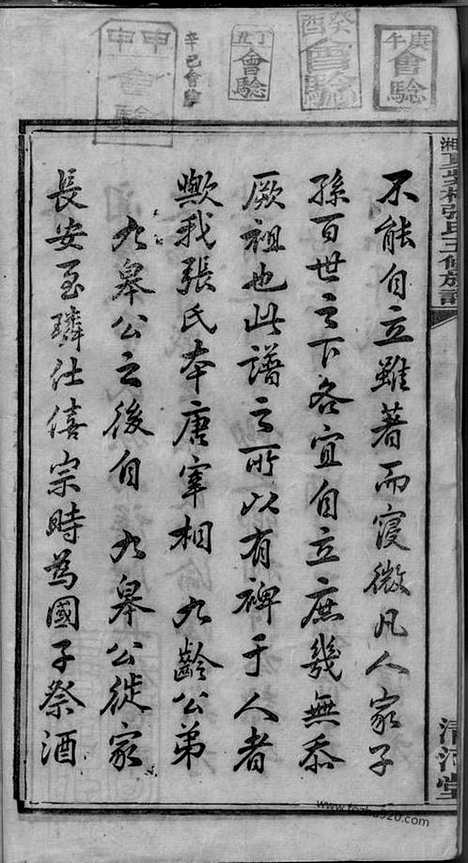 庚午會驗
癸酉會驗
丁丑會驗
辛巳會驗
甲申會驗
張氏三修族譜
清河堂
不能自立雖著而寖微凡人家子
孫百世之下各宜自立庶幾無忝
厥祖也此譜之所以有裨于人者
歟我張氏本唐宰相九齡公弟
九皋公之後自九皋公徙家
長安至璘仕僖宗時為國子祭酒